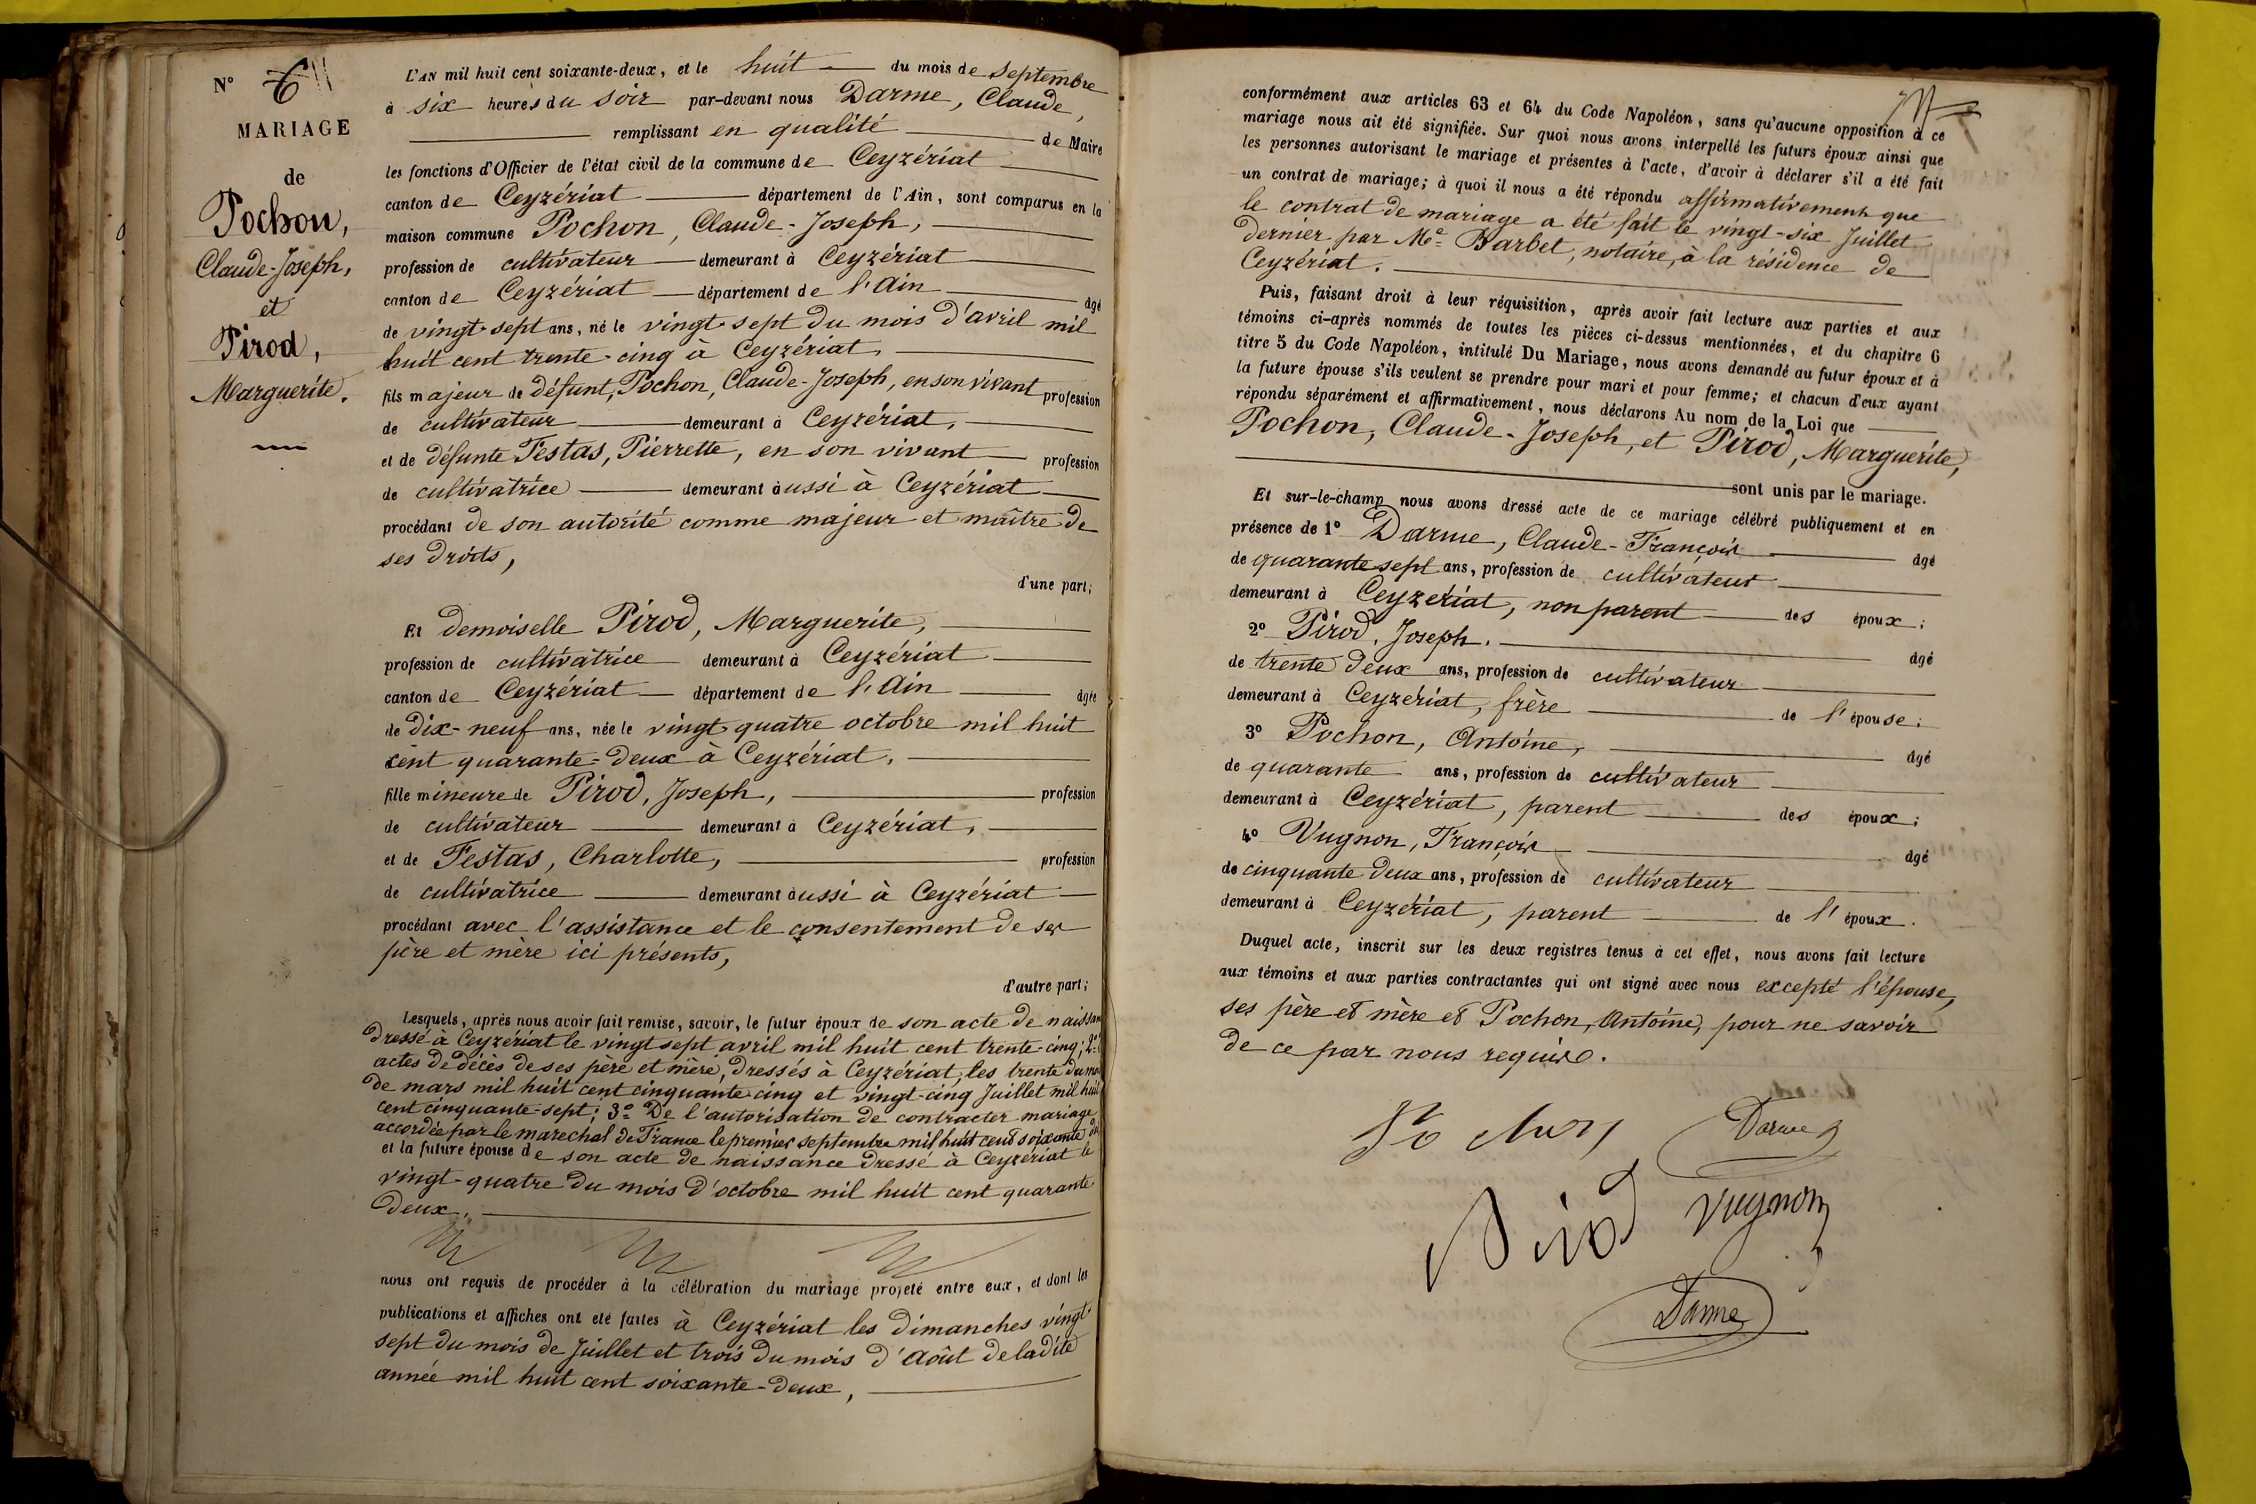 N° 6
MARIAGE
de
Pochon,
Claude-Joseph,
et
Pirod,
Marguerite.
L'AN mil huit cent soixante-deux, et le huit du mois de Septembre
à six heures du soir par-devant nous Darme, Claude,
remplissant en qualité de Maire
les fonctions d'Officier de l'état civil de la commune de Ceyzériat
canton de Ceyzériat département de l'Ain, sont comparus en la
maison commune Pochon, Claude-Joseph,
profession de cultivateur demeurant à Ceyzériat
canton de Ceyzériat département de l'Ain âgé
de vingt-sept ans, né le vingt-sept du mois d'avril mil
huit cent trente-cinq à Ceyzériat,
fils majeur de défunt, Pochon, Claude-Joseph, en son vivant profession
de cultivateur demeurant à Ceyzériat,
et de défunte Festas, Pierrette, en son vivant profession
de cultivatrice demeurant aussi à Ceyzériat
procédant de son autorité comme majeur et maître de
ses droits,
d'une part;
Et demoiselle Pirod, Marguerite,
profession de cultivatrice demeurant à Ceyzériat
canton de Ceyzériat département de l'Ain âgée
de dix-neuf ans, née le vingt-quatre octobre mil huit
cent quarante-deux à Ceyzériat,
fille mineure de Pirod, Joseph, profession
de cultivateur demeurant à Ceyzériat,
et de Festas, Charlotte, profession
de cultivatrice demeurant aussi à Ceyzériat
procédant avec l'assistance et le consentement de ses
père et mère ici présents,
d'autre part;
Lesquels, après nous avoir fait remise, savoir, le futur époux de son acte de naissan
dressé à Ceyzériat le vingt sept avril mil huit cent trente-cinq; 2°
actes de décès de ses père et mère, dressés à Ceyzériat, les trente du mo
de mars mil huit cent cinquante-cinq et vingt-cinq Juillet mil huit
cent cinquante-sept; 3° De l'autorisation de contracter mariage
accordée par le maréchal de France le premier septembre mil huit cent soixante
et la future épouse de son acte de naissance dressé à Ceyzériat le
vingt-quatre du mois d'octobre mil huit cent quarante
deux.
nous ont requis de procéder à la célébration du mariage projeté entre eux, et dont les
publications et affiches ont été faites à Ceyzériat les dimanches vingt-
sept du mois de Juillet et trois du mois d'Août de ladite
année mil huit cent soixante-deux,
conformément aux articles 63 et 64 du Code Napoléon, sans qu'aucune opposition à ce
mariage nous ait été signifiée. Sur quoi nous avons interpellé les futurs époux ainsi que
les personnes autorisant le mariage et présentes à l'acte, d'avoir à déclarer s'il a été fait
un contrat de mariage; à quoi il nous a été répondu affirmativement que
le contrat de mariage a été fait le vingt-six Juillet
dernier par Me Barbet, notaire, à la résidence de
Ceyzériat.
Puis, faisant droit à leur réquisition, après avoir fait lecture aux parties et aux
témoins ci-après nommés de toutes les pièces ci-dessus mentionnées, et du chapitre 6
titre 5 du Code Napoléon, intitulé Du Mariage, nous avons demandé au futur époux et à
la future épouse s'ils veulent se prendre pour mari et pour femme; et chacun d'eux ayant
répondu séparément et affirmativement, nous déclarons Au nom de la Loi que
Pochon, Claude-Joseph, et Pirod, Marguerite,
sont unis par le mariage.
Et sur-le-champ nous avons dressé acte de ce mariage célébré publiquement et en
présence de 1° Darme, Claude-François âgé
de quarante sept ans, profession de cultivateur
demeurant à Ceyzériat, non parent des époux;
2° Pirod, Joseph, âgé
de trente deux ans, profession de cultivateur
demeurant à Ceyzériat, frère de l'épouse;
3° Pochon, Antoine, âgé
de quarante ans, profession de cultivateur
demeurant à Ceyzériat, parent des époux;
4° Vugnon, François âgé
de cinquante deux ans, profession de cultivateur
demeurant à Ceyzériat, parent de l'époux.
Duquel acte, inscrit sur les deux registres tenus à cet effet, nous avons fait lecture
aux témoins et aux parties contractantes qui ont signé avec nous excepté l'épouse,
ses père et mère et Pochon, Antoine, pour ne savoir
de ce par nous requis.
Darme
Pirod
Vugnon
Darme